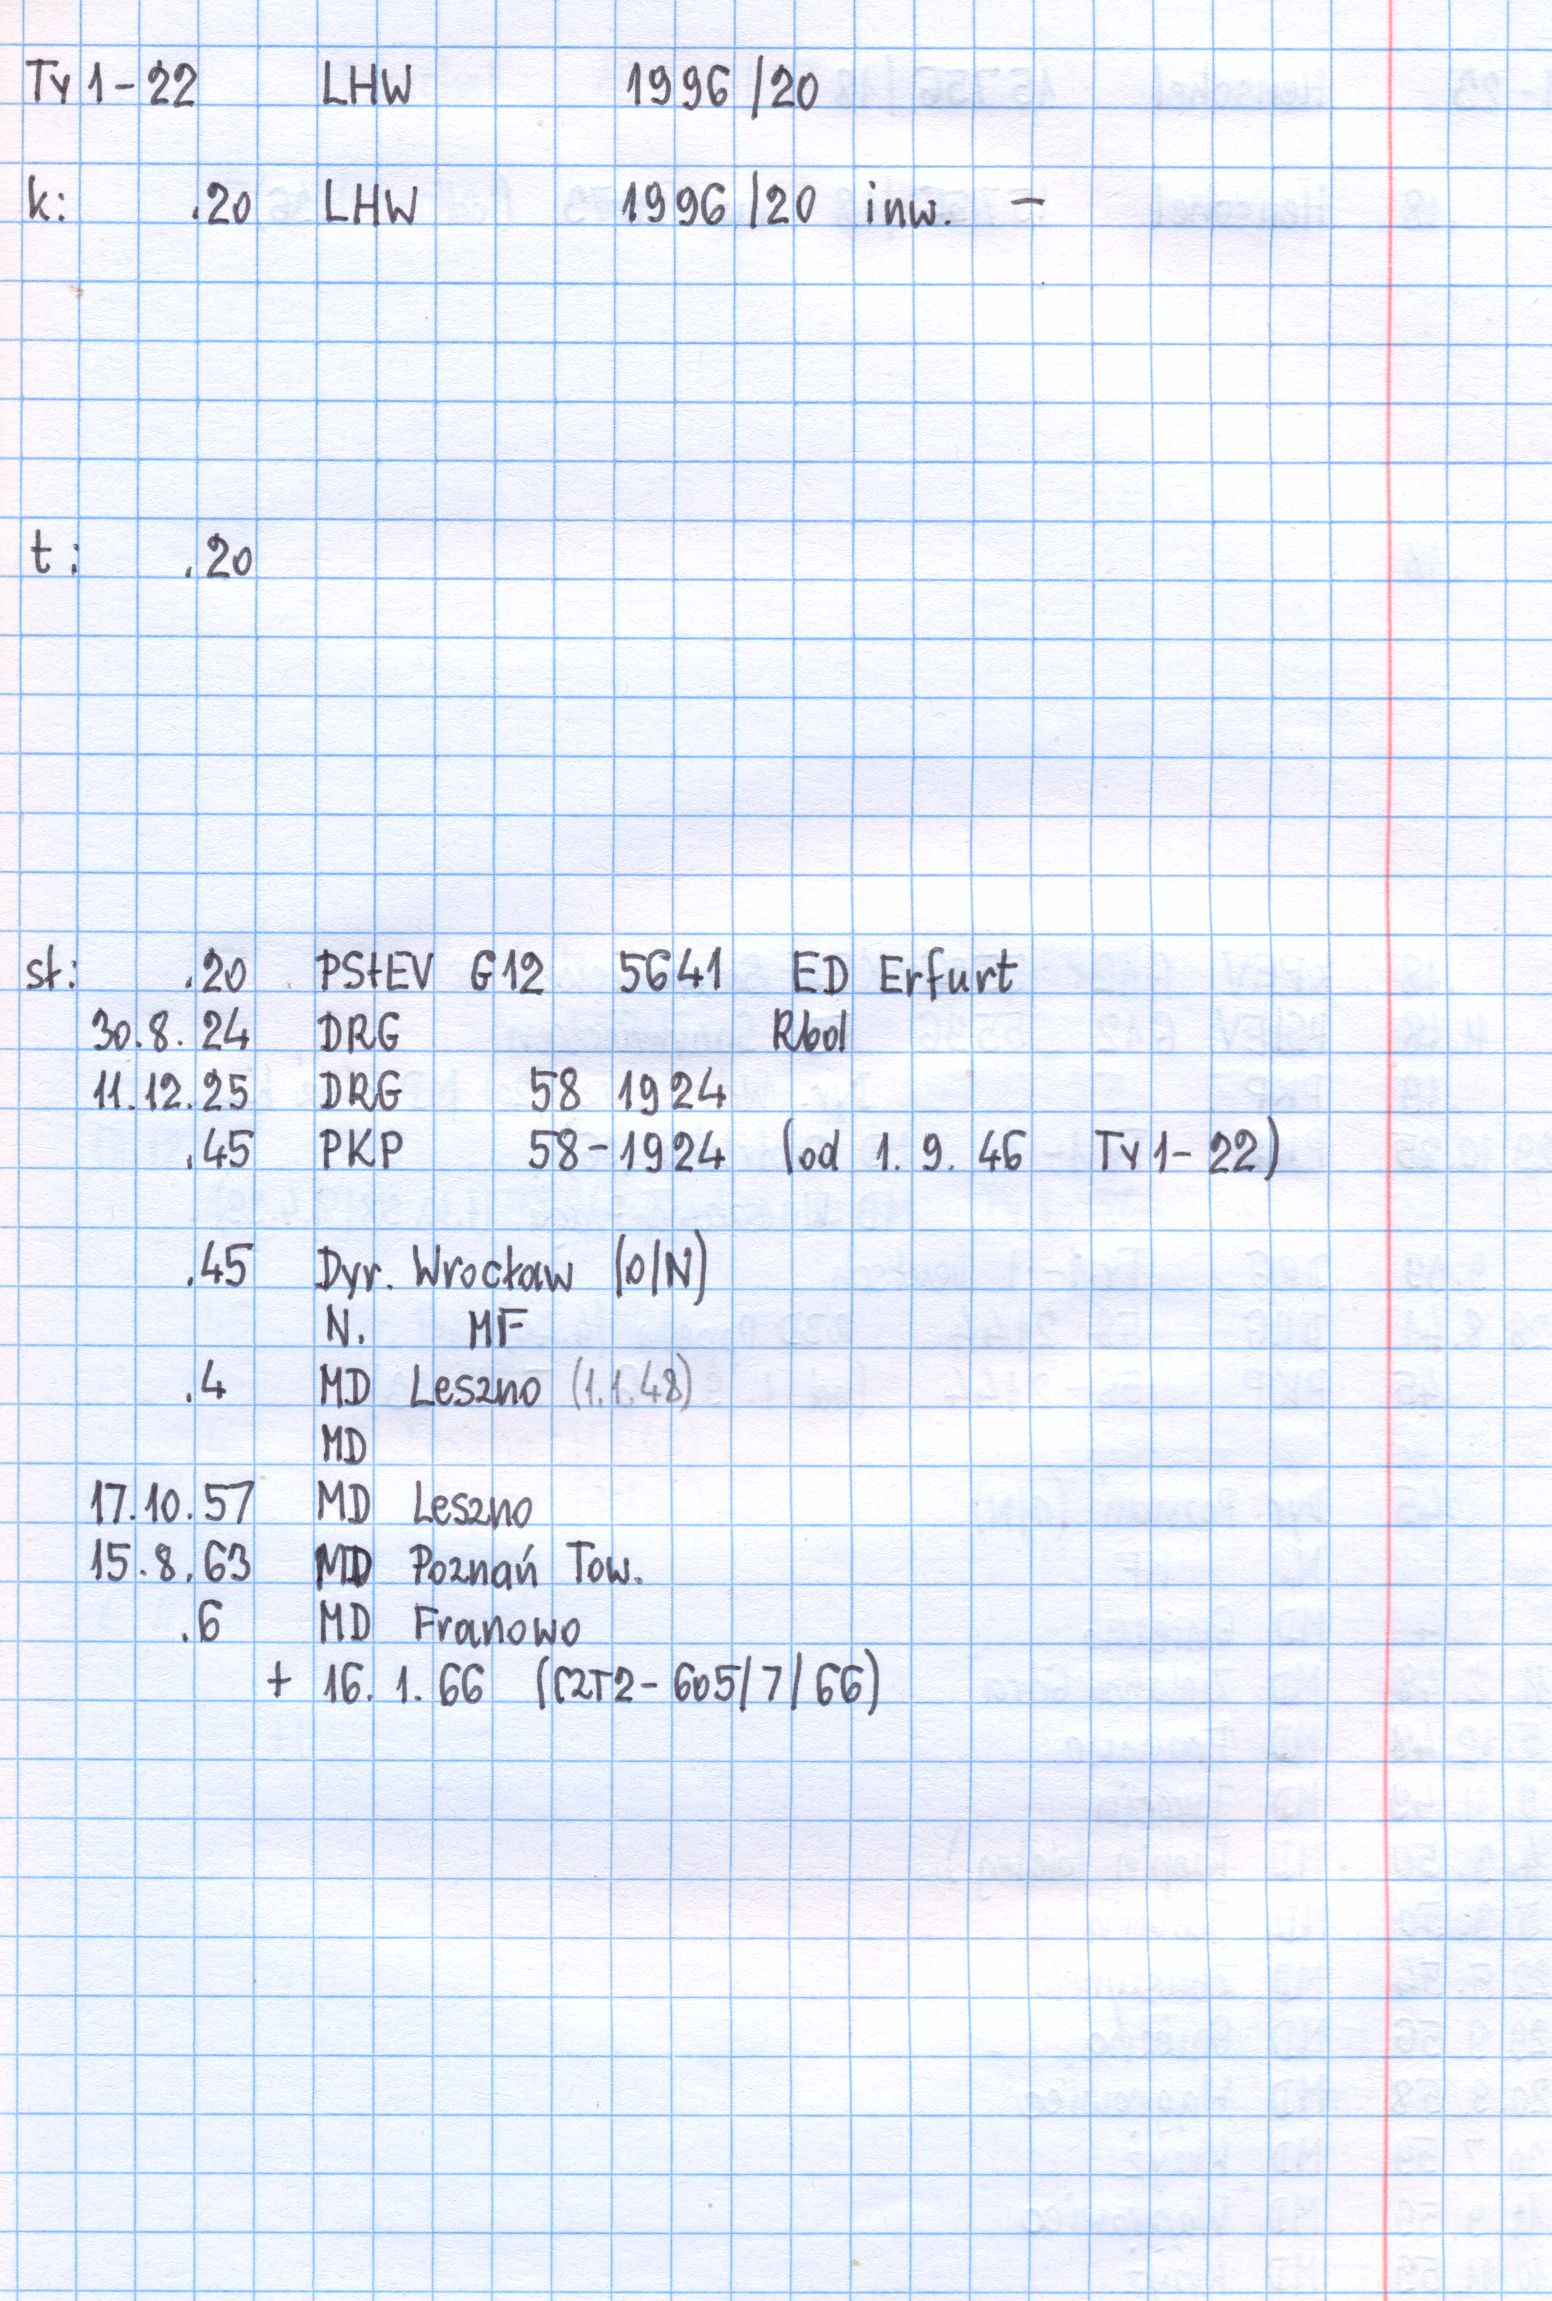 Ty 1-22 LHW 1996/20
k: .20 LHW 1996/20 inw. -
t: .20
st: .20 PStEV G12 5641 ED Erfurt
30.8.24 DRG Rbd
11.12.25 DRG 58 1924
.45 PKP 58-1924 (od 1.9.46 Ty 1-22)
.45 Dyr. Wrocław (O/N)
N. MF
.4 MD Leszno (1.1.48)
MD
17.10.57 MD Leszno
15.8.63 MD Poznań Tow.
.6 MD Franowo
+ 16.1.66 (CZT2-605/7/66)